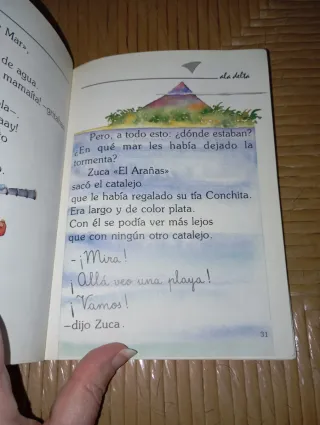 Mar».
de agua.
mamaíta!
ala delta
Pero, a todo esto: ¿dónde estaban?
¿En qué mar les había dejado la
tormenta?
Zuca «El Arañas»
sacó el catalejo
que le había regalado su tía Conchita.
Era largo y de color plata.
Con él se podía ver más lejos
que con ningún otro catalejo.
–¡Mira!
¡Allá veo una playa!
¡Vamos!
–dijo Zuca.
31